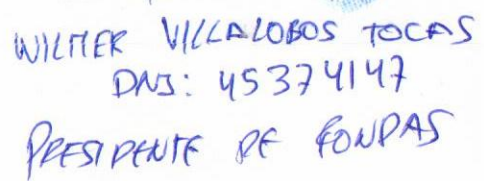 WILMER VILLALOBOS TOCAS
DNI: 45374147
PRESIDENTE DE FONDAS